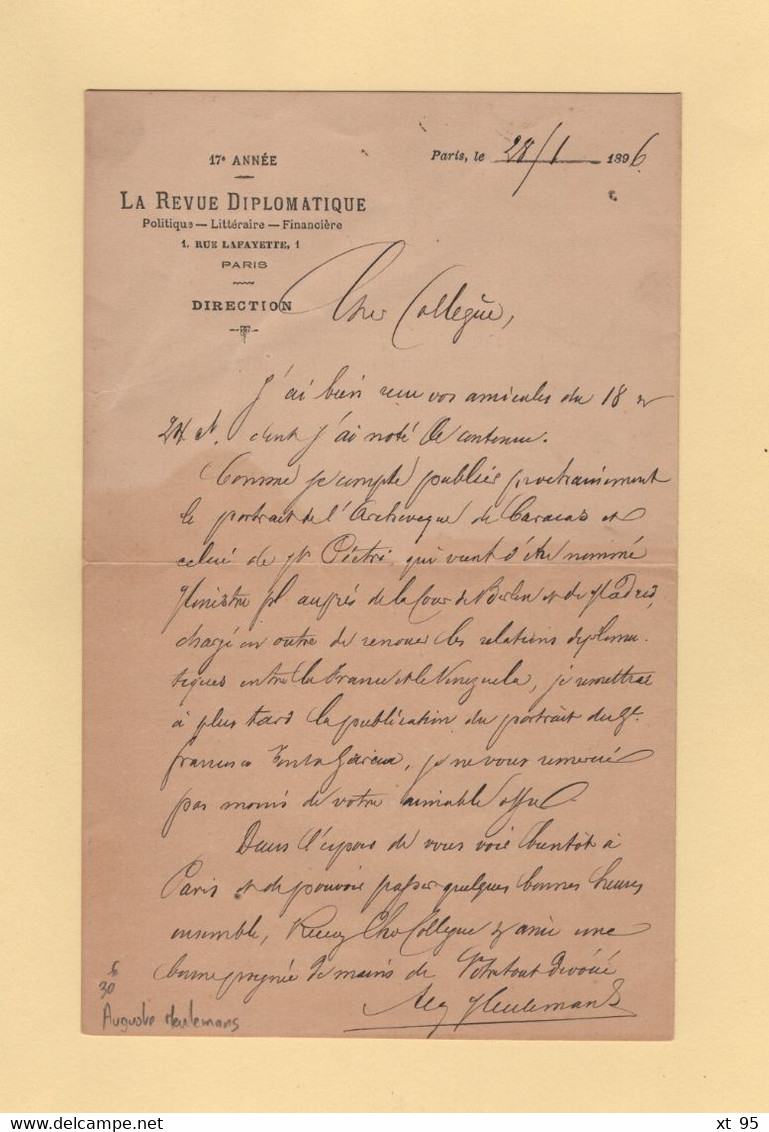 17e ANNÉE
LA REVUE DIPLOMATIQUE
Politique — Littéraire — Financière
1, RUE LAFAYETTE, 1
PARIS
DIRECTION
Paris, le 28/1 1896
Cher Collègue,
J'ai bien reçu vos amicales du 18 et
24 ct. dont j'ai noté le contenu.
Comme je compte publier prochainement
le portrait de l'Archevêque de Caracas et
celui de Mr Piétri, qui vient d'être nommé
Ministre pl auprès de la Cour de Berlin et de Madrid,
chargé en outre de renouer les relations diploma-
tiques entre la France et le Venezuela, je remettrai
à plus tard la publication du portrait du Gl.
Francisco Garcia, je ne vous remercie
pas moins de votre aimable offre.
Dans l'espoir de vous voir bientôt à
Paris et de pouvoir passer quelques bonnes heures
ensemble, Recevez Cher Collègue et ami une
bonne poignée de mains de Votre tout dévoué
Meulemans
30
Auguste Meulemans
xt 95